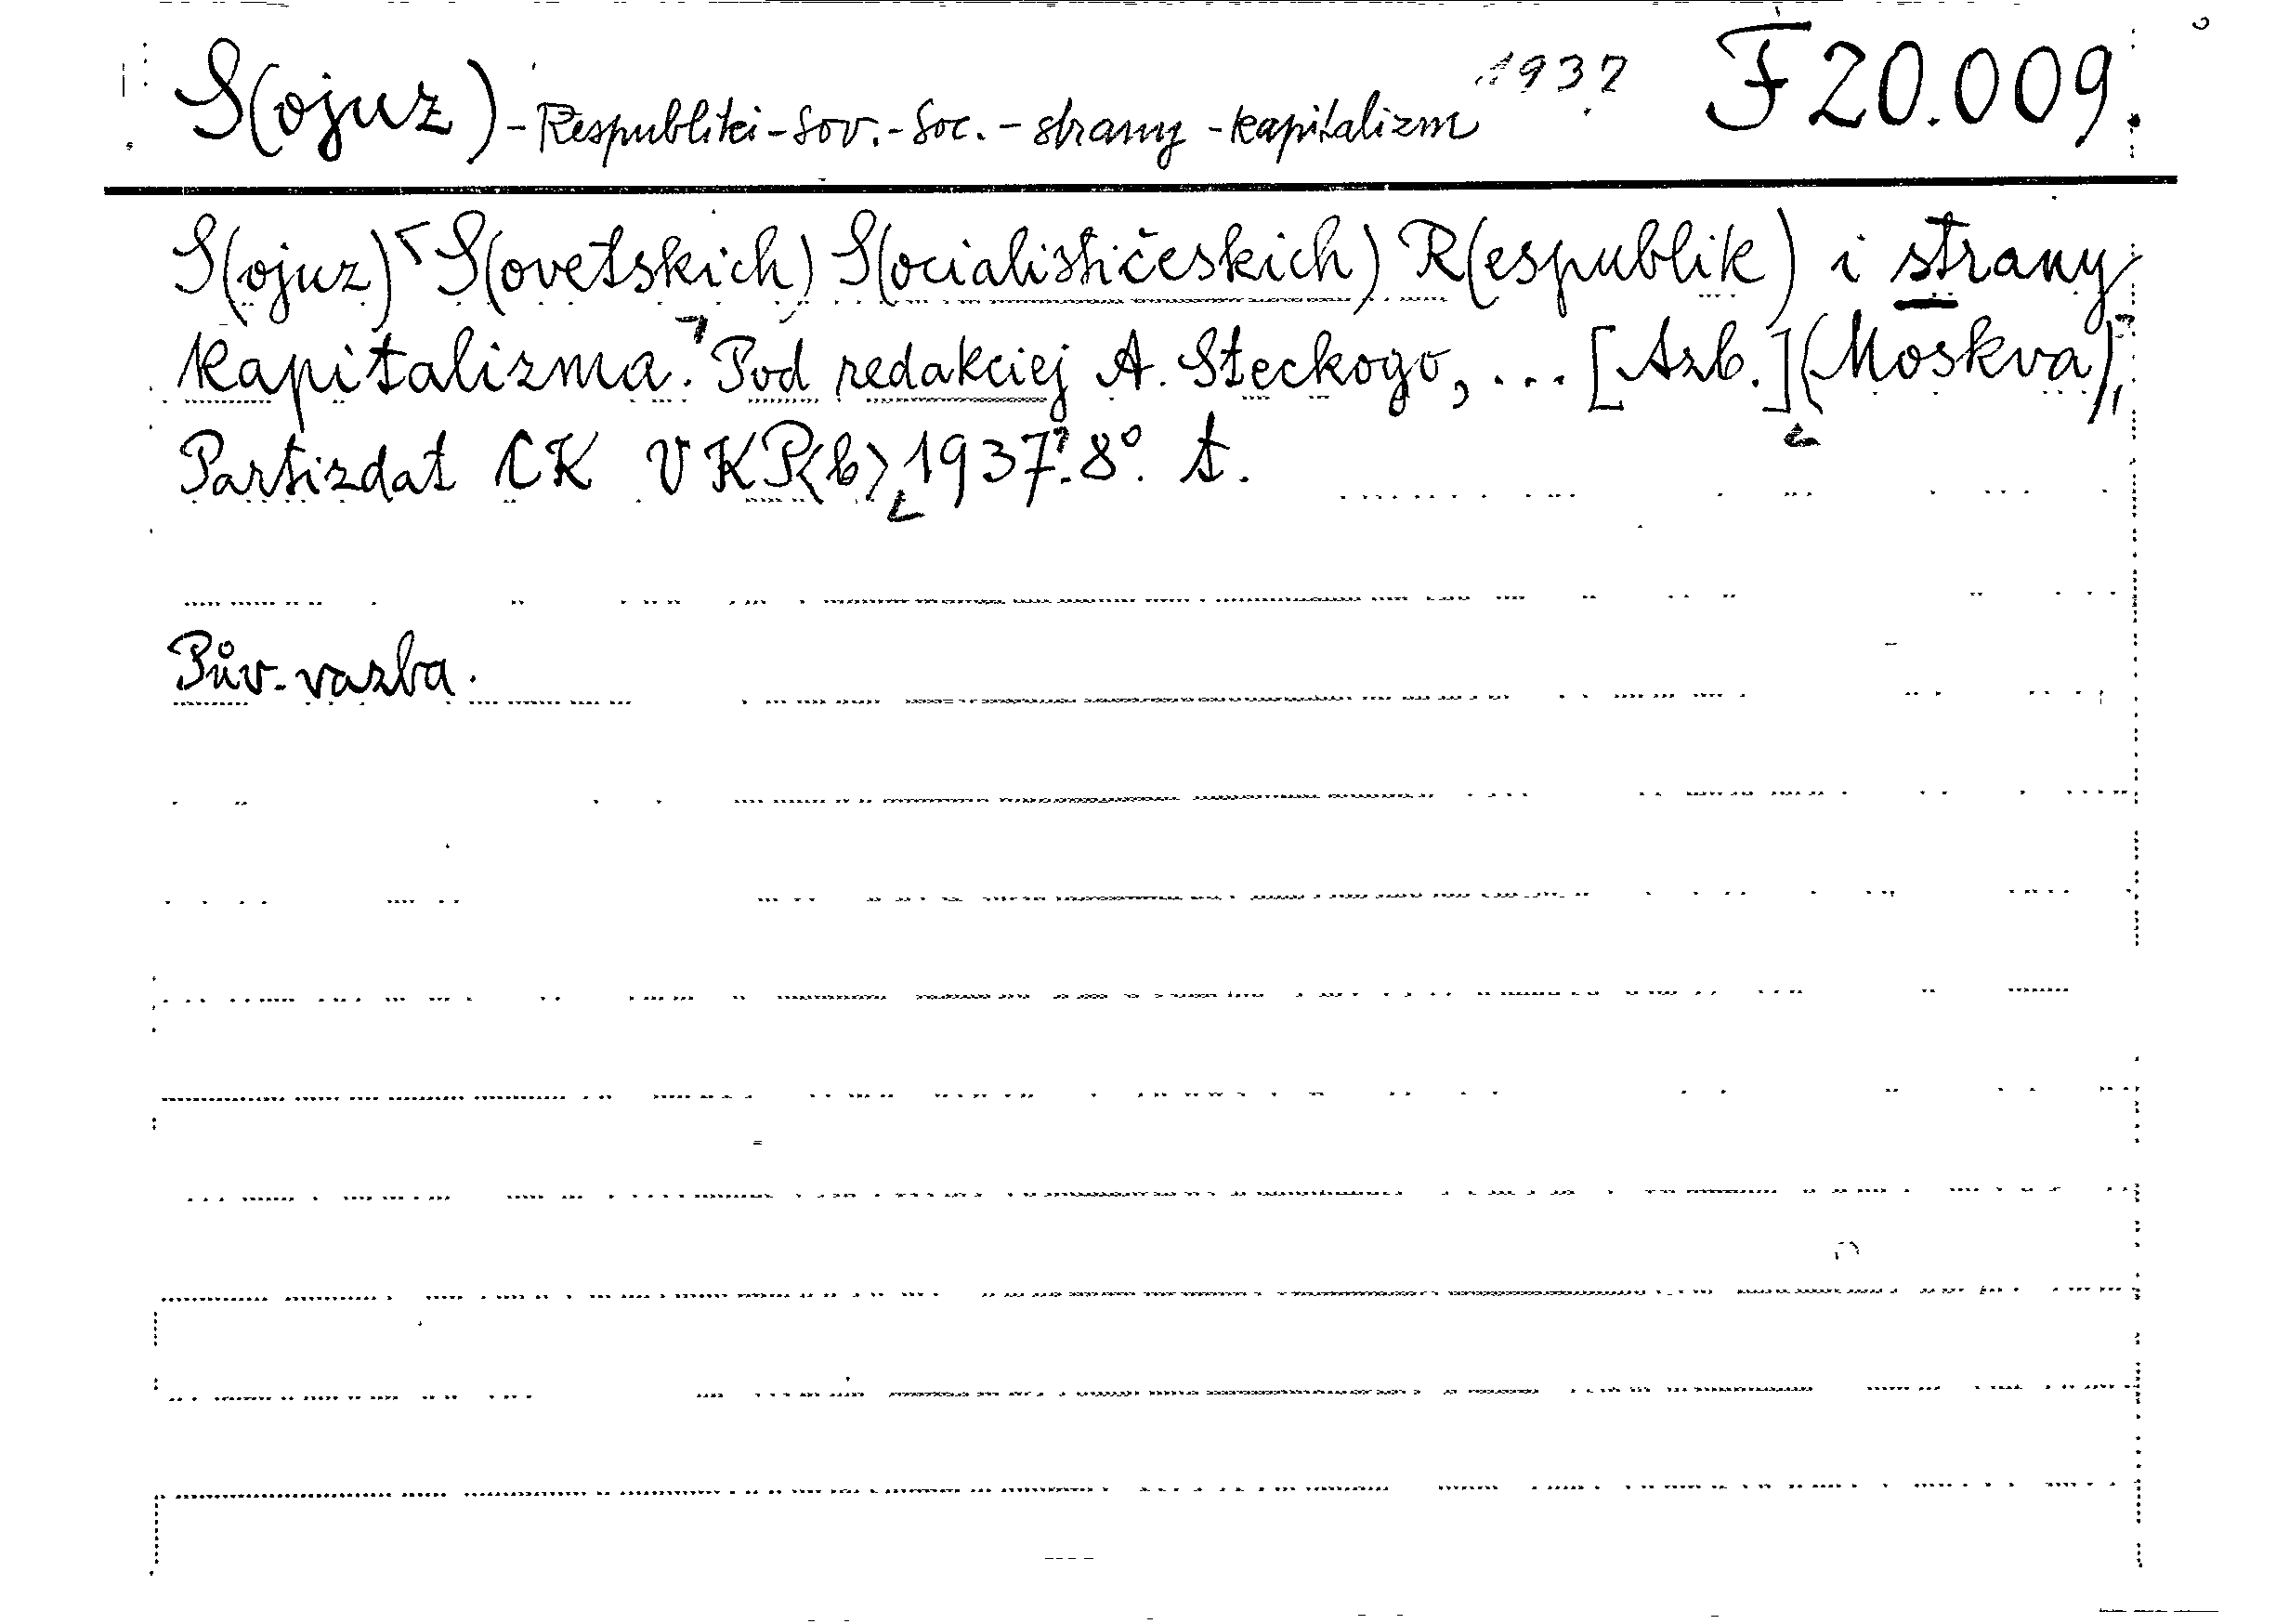 S(ojuz)-Respubliki-Sov.-Soc.-strany-kapitalizm 1937 F 20.009.
S(ojuz) S(ovetskich) S(ocialističeskich) R(espublik) i strany
kapitalizma. Pod redakciej A. Steckogo, ... [Azb.] (Moskva),
Partizdat CK VKP(b) 1937. 8°. t.
Pův. vazba.